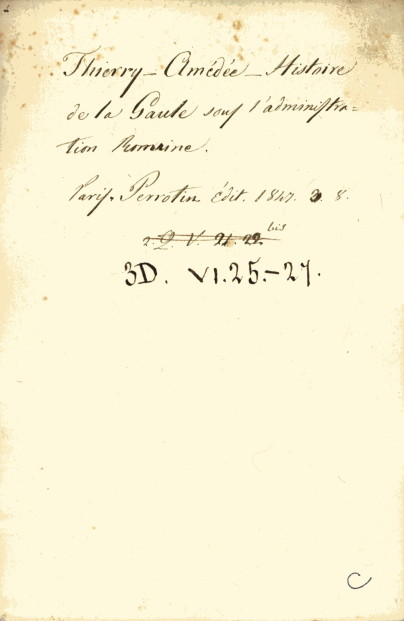 Thierry - Amédée - Histoire
de la Gaule sous l'administra=
tion Romaine.
Paris. Perrotin édit. 1847. 3 8.
2. Q. V. 21. 22. bis
3D. VI. 25.-27.
C